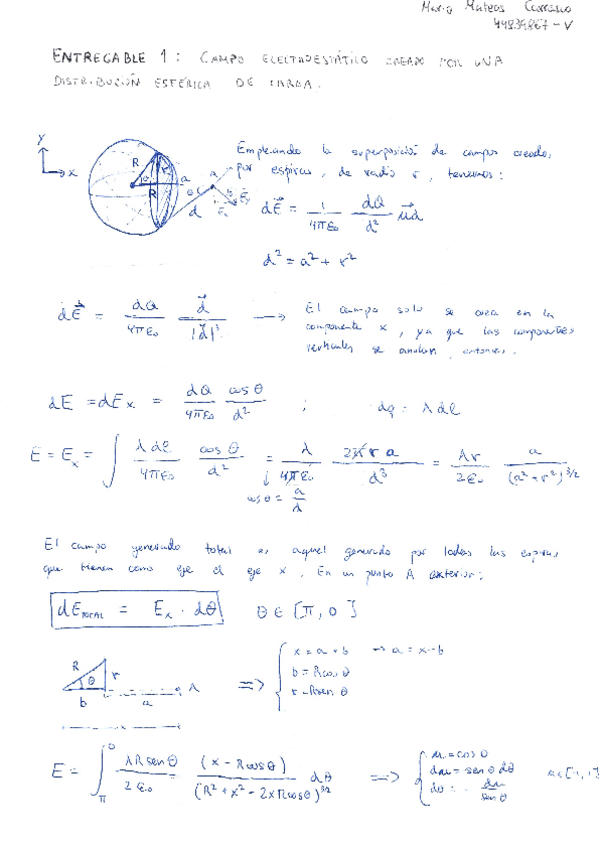 Mario Mateos Carrasco
ENTREGABLE 1: CAMPO ELECTROESTÁTICO CREADO POR UNA
DISTRIBUCIÓN ESFÉRICA DE CARGA.
Empleando la superposición de campos creados
por espiras, de radio r, tenemos:
y x R R θ a θ d
dE⃗ = 1/4πε₀ dQ/d² u⃗d
d² = a² + r²
dE⃗ = dQ/4πε₀ d⃗/|d⃗|³ → El campo solo se crea en la
componente x, ya que las componentes
verticales se anulan, entonces.
dE = dEx = dQ/4πε₀ cos θ/d² ; dq = λ dl
E = Ex = ∫ λ dl/4πε₀ cos θ/d² = λ/4πε₀ 2π r a/d³ = λr/2ε₀ a/(a² + r²)^3/2
cos θ = a/d
El campo generado total es aquel generado por todas las espiras
que tienen como eje el eje x. En un punto A exterior:
dE TOTAL = Ex · dθ θ ∈ [π, 0]
R r θ b a
⇒ { x = a + b → a = x - b
b = R cos θ
r = R sen θ
E = ∫ π 0 λR sen θ/2ε₀ (x - R cos θ)/(R² + x² - 2xR cos θ)^3/2 dθ ⇒ { u = cos θ
du = sen θ dθ
dθ = - du/sen θ